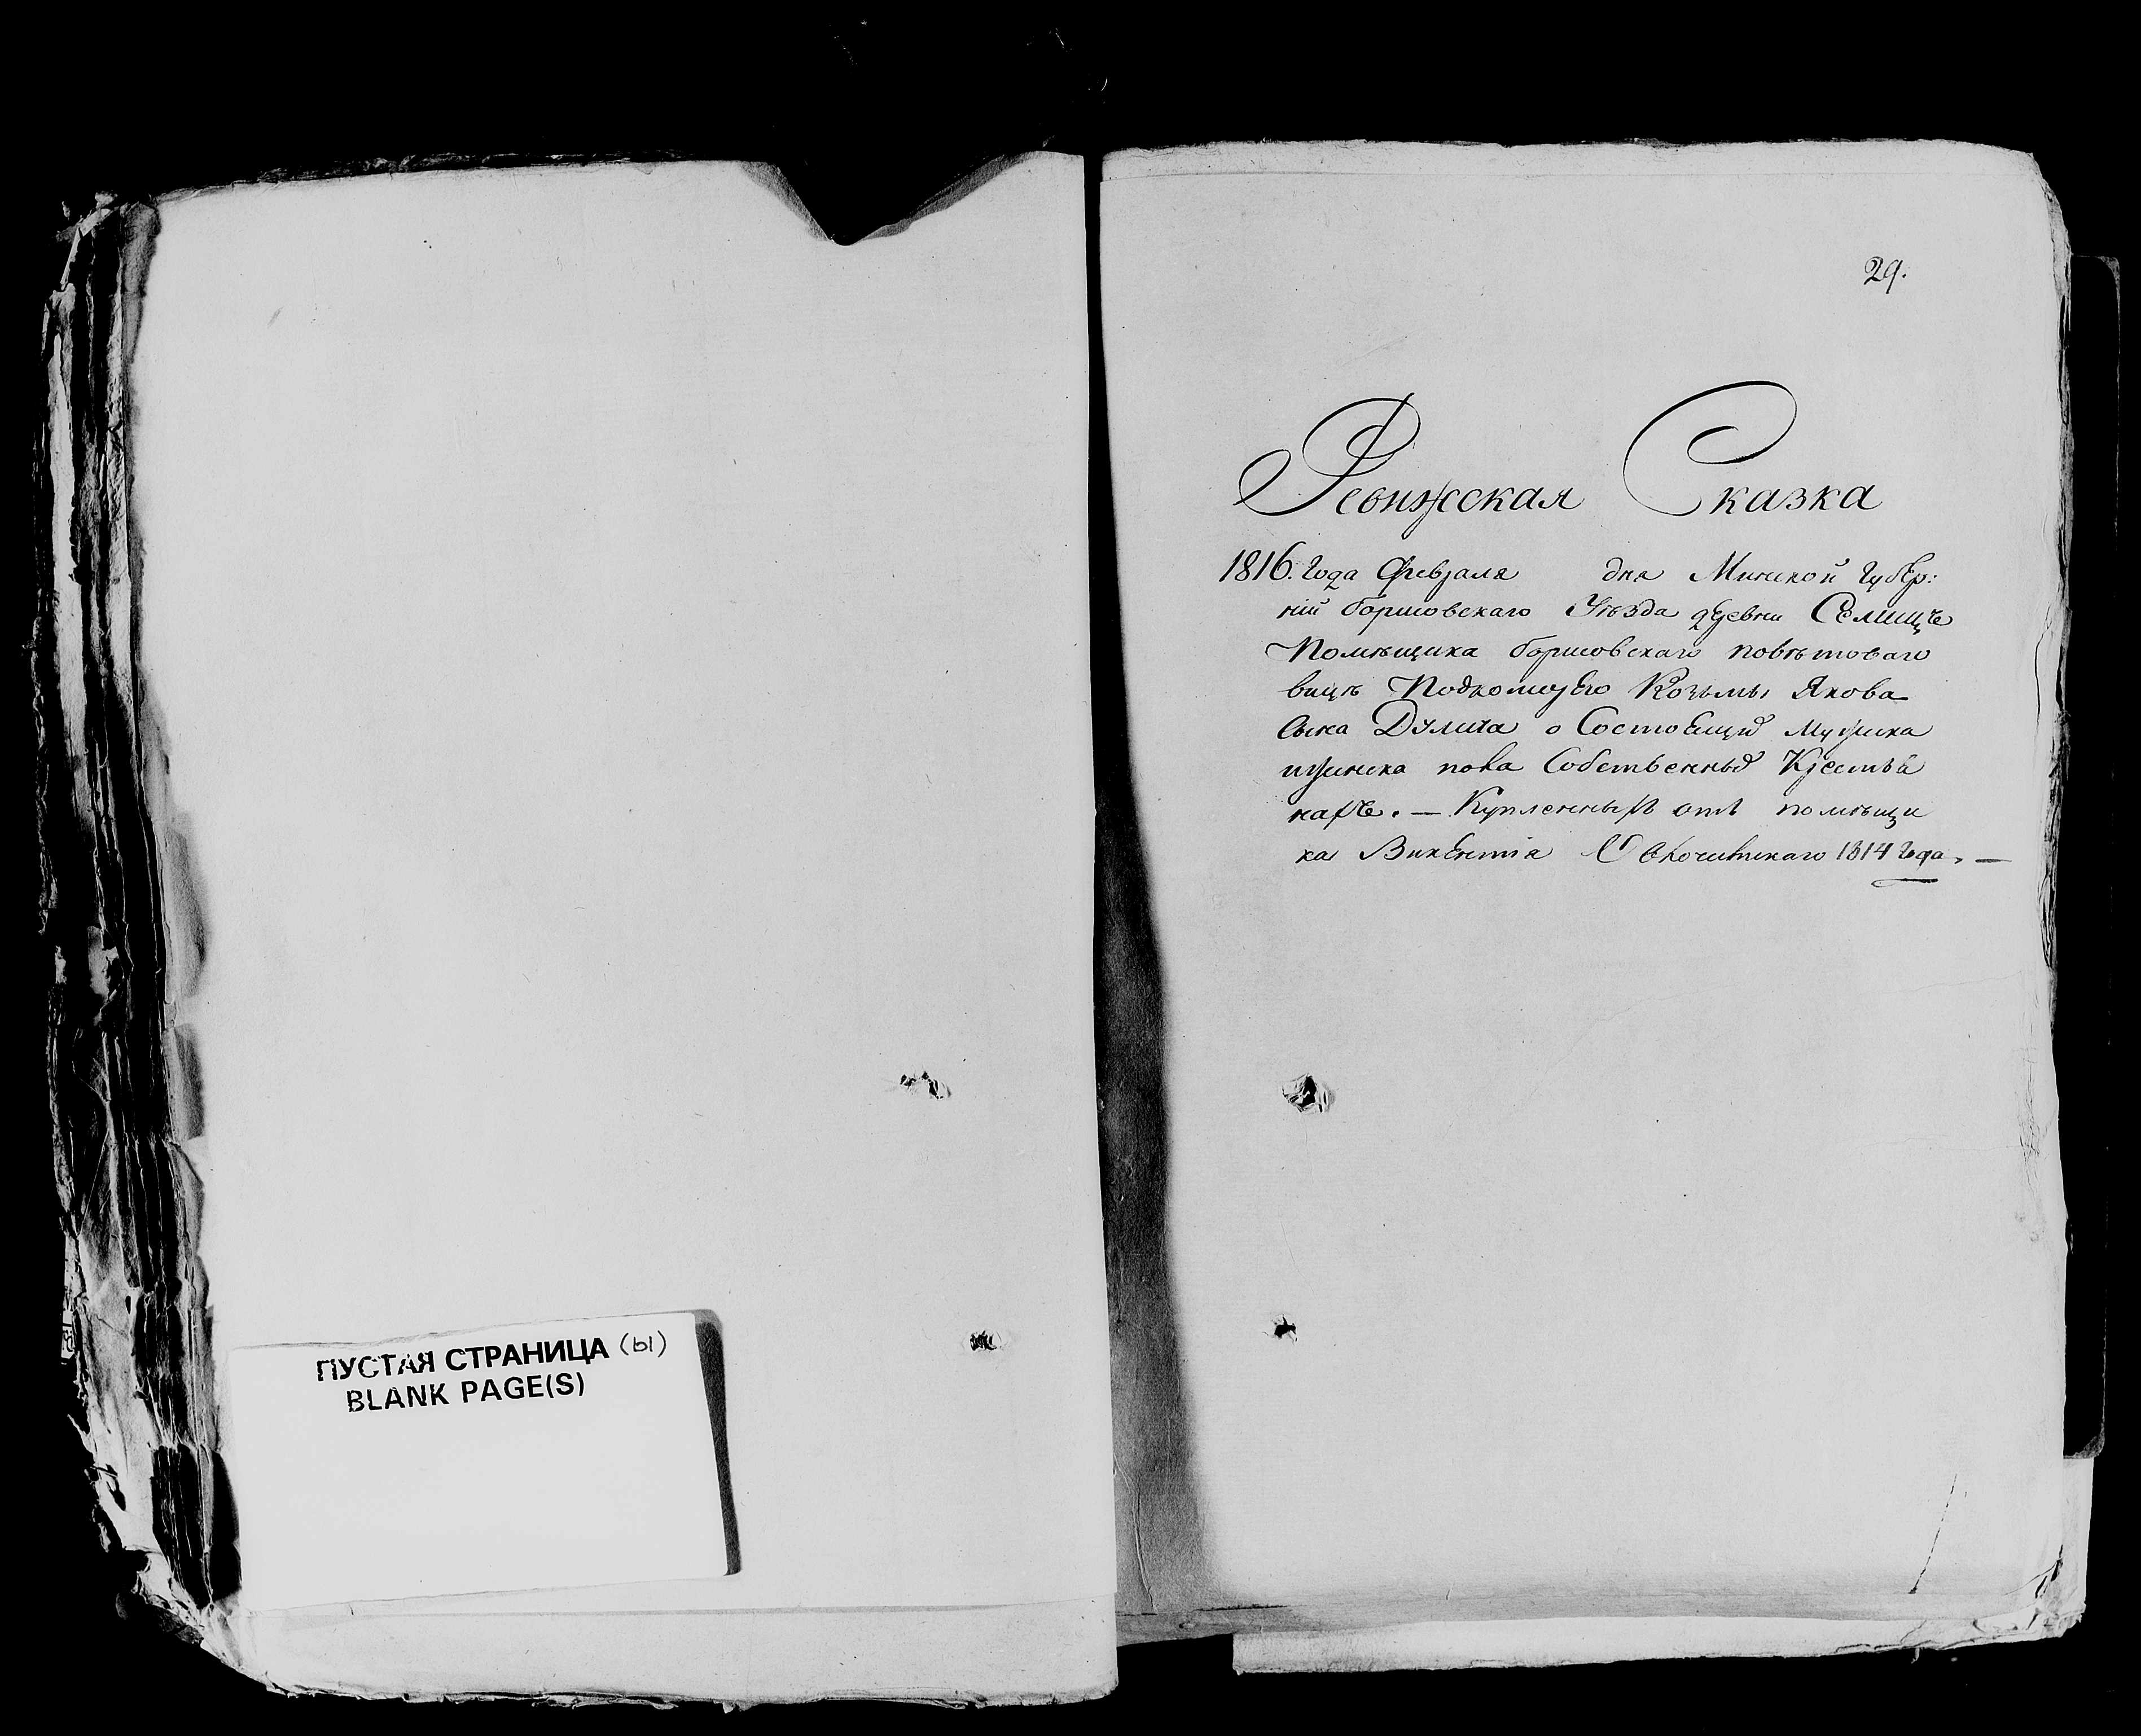 ПУСТАЯ СТРАНИЦА (ы)
BLANK PAGE(S)
29.
Ревижская Сказка
1816. года Февраля дня Минской Губер:
ніи борисовскаго Уѣзда деревни Селищъ
Помѣщика борисовскаго повѣтоваго
вицъ Подкоморего Козьмы Якова
сына Дулича о Состоящих мужска
и женска пола Собственных Крестья
нахъ. — Купленныхъ отъ помѣщи
ка Викентія 1814 года. —